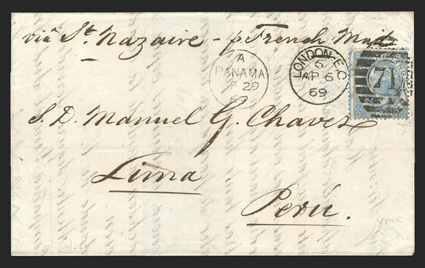 viâ St. Nazaire - p French Mail
A
PANAMA
AP 29
LONDON E.C.
6
AP 6
69
71
S. D. Manuel G. Chavez
Lima
Perú.